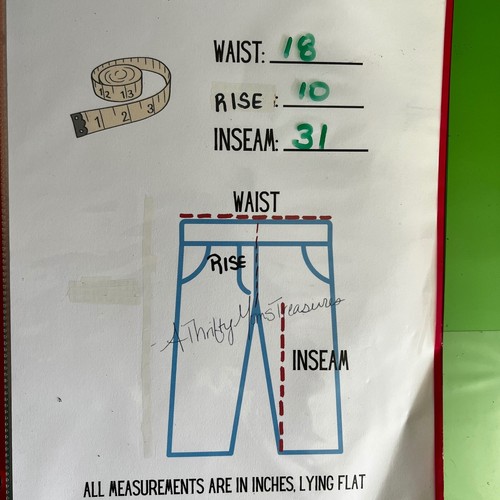 WAIST: 18
RISE : 10
INSEAM: 31
1 2 1 3
1 2 3
WAIST
RISE
-AThriftyMomsTreasures
INSEAM
ALL MEASUREMENTS ARE IN INCHES, LYING FLAT